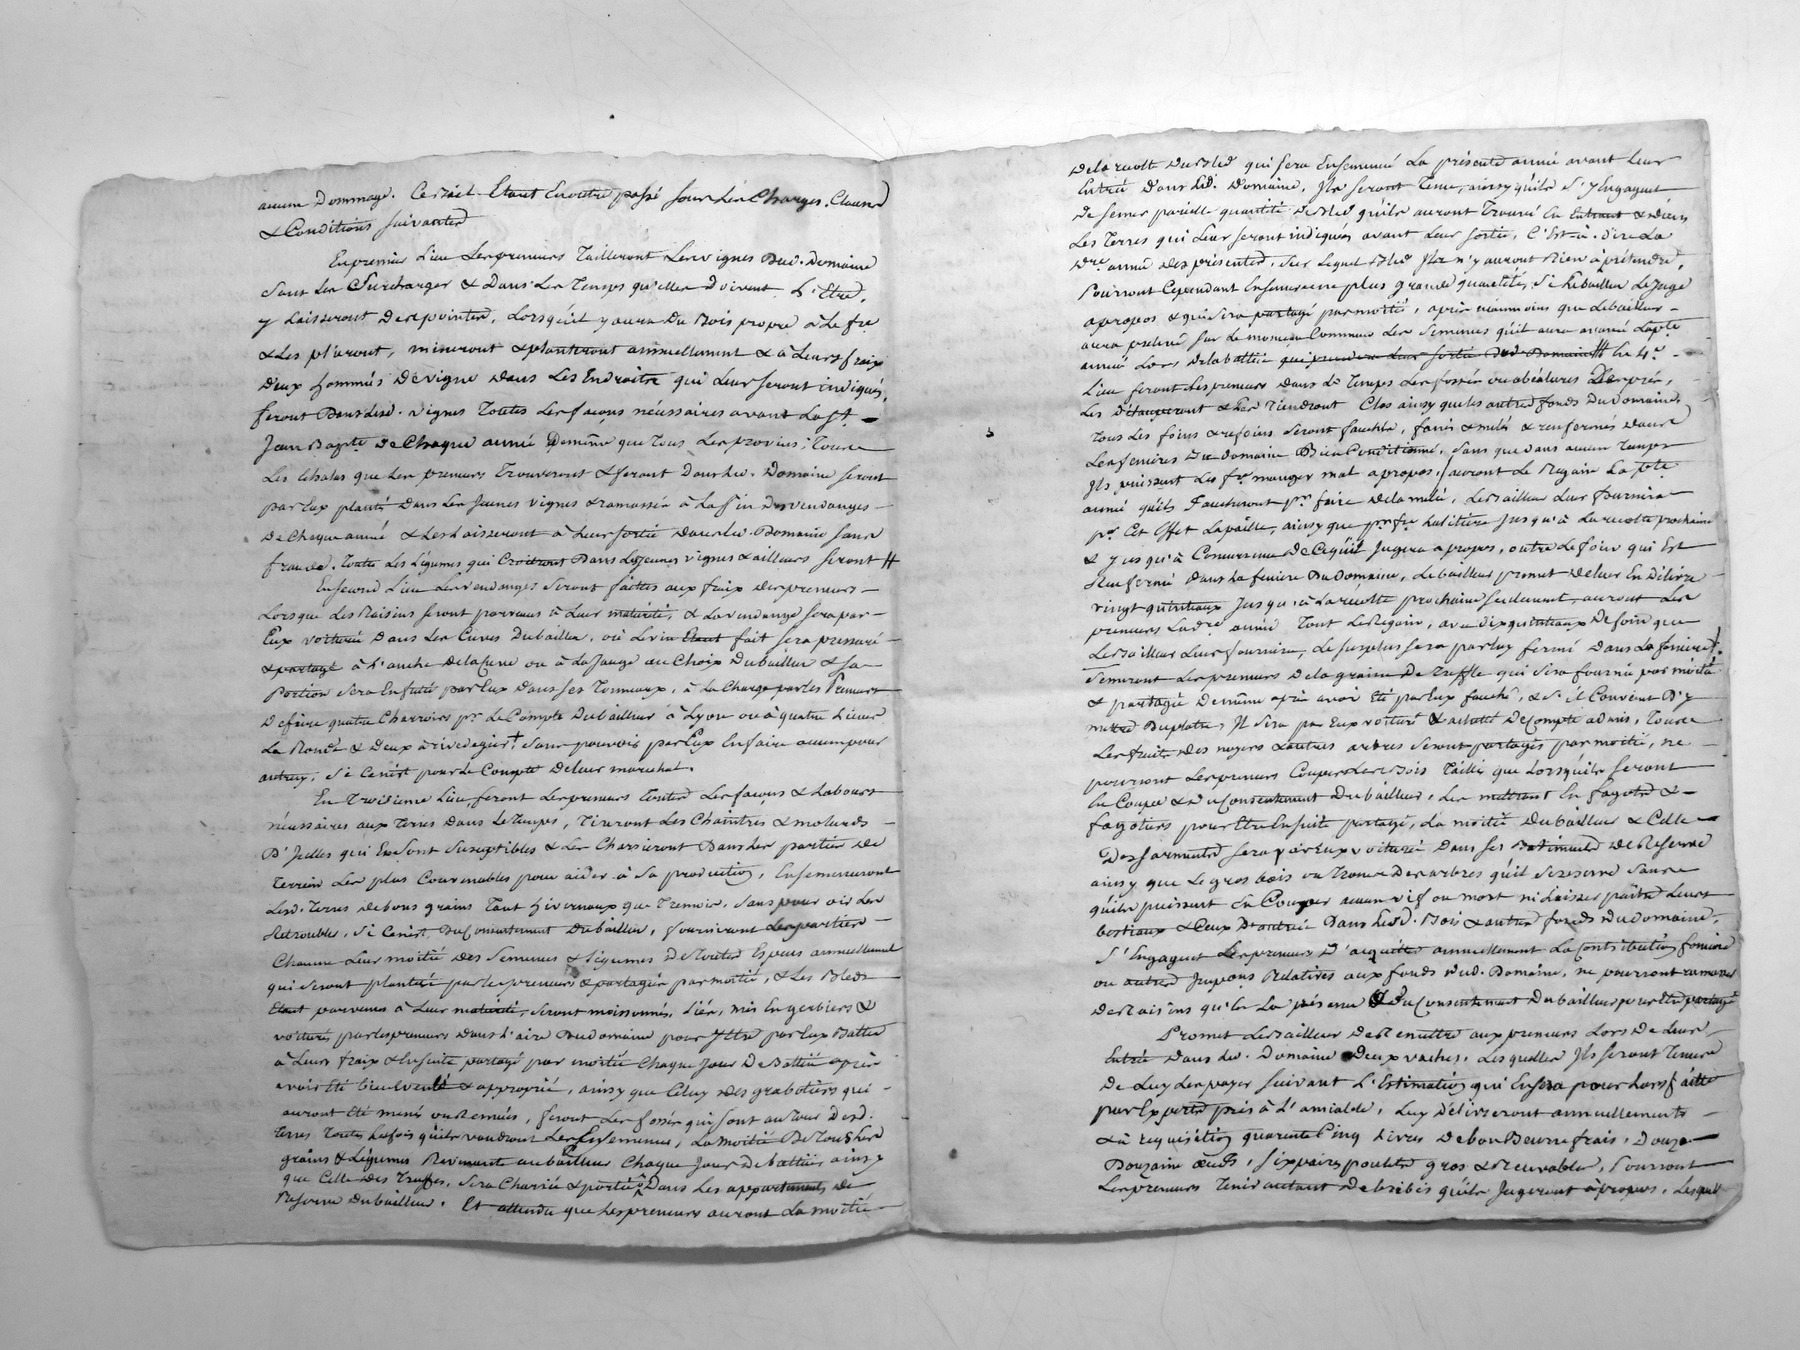 aucun Dommage. Ce Bail Etant Enoutre passé sous les Charges, Clauses
& Conditions suivantes
En premier Lieu Les preneurs Tailleront Les vignes Dud. Domaine
Sans Les Surcharger & Dans Les Temps qu'elles Doivent L'Etre,
y Laisseront Des pointes, Lorsqu'il y aura Du Bois propre à Le fre
& Les pl'eront, mineront & planteront annuellement & à Leurs fraix
Deux hommées De vigne Dans Les Endroits qui Leur seront indiqués,
feront Dans Lesd. vignes Toutes Les façons nécessaires avant La St
Jean Bapte De Chaque année De même que Tous Les provins; Tous
Les Echalas que Les preneurs Trouveront & feront Dans Led. Domaine seront
par Eux plantés Dans Les Jeunes vignes & ramassés à La fin Des vendanges
De Chaque année & Les Laisseront à Leur sortie Dans Led. Domaine sans
fraude. Toutes Les Légumes qui Croitront Dans Les Jeunes vignes & ailleurs seront #
En second Lieu Les vendanges seront faittes aux fraix Des preneurs
Lorsque Les Raisins seront parvenus à Leur maturité, & La vendange sera par
Eux voiturée Dans Les Cuves Du bailleur, où Le vin Etant fait sera pressuré
& partagé à L'anche De la Cuve ou à La Jauge au Choix Du bailleur & sa
Portion sera Ensuite par Eux Dans ses Tonneaux, à La Charge par les Preneurs
De faire quatre Charrois pr Le Compte Du bailleur à Lyon ou à quatre Lieues
La Ronde & Deux à rivedegier † sans pouvoir par Eux En faire aucun pour
autruy, si Ce n'est pour Le Compte De Leur marechal.
En Troisieme Lieu feront Les preneurs Toutes Les façons & Labours
nécessaires aux Terres Dans Le Temps, Tireront Les Chaintres & molards
D'Icelles qui En sont susceptibles & Les Charrieront Dans Les parties De
Terrein Les plus Convenables pour aider à sa production, Ensemenceront
Lesd. Terres De bons grains Tant hivernaux que Tremois, sans pouvoir Les
Retroubler, si Ce n'est Du Consentement Du bailleur, fourniront Les parties
Chacune Leur moitié Des semences & Légumes De Toutes Especes annuellement
qui seront plantés par les preneurs & partagés par moitié, & Les Bleds
Etant parvenus à Leur maturité, seront moissonnés, Liés, mis En gerbiers &
voiturés par les preneurs Dans L'aire Du Domaine pour y Etre par Eux Battus
à Leurs fraix & Ensuite partagé par moitié Chaque Jour De Battie après
avoir été bien venté & approprié, ainsy que Celuy Des grabotiers qui
auront Eté menés ou Remués, feront Les fossés qui sont au Tour Desd.
terres Toutes Les fois qu'ils voudront Les Ensemencer, La moitié De Tous Les
grains & Légumes Revenante au bailleur Chaque Jour De battie, ainsy
que Celle Des Truffes, sera Charriée & portée Dans Les appartements De
Reserve Du bailleur. Et attendu que Les preneurs auront La moitié
De la récolte Du Bled qui sera Ensemencé La présente année avant Leur
Entrée Dans Led. Domaine, Ils seront Tenus, ainsy qu'ils s'y Engagent
De semer pareille quantité De Bled qu'ils auront Trouvé En Entrant & Dans
Les Terres qui Leur seront indiquées avant Leur sortie, C'Est-à-Dire La
Dre année Des présentes, sur Lequel Bled Ils n'y auront Rien à prétendre,
Pourront Cependant Ensemencer une plus grande quantité, si Le bailleur Le Juge
apropos & qui sera partagé par moitié, après néanmoins que Le bailleur
aura prelevé sur Le monceau Commun Les semences qu'il aura avancé La pte
année Lors De la battie que prendra Leur sortie Dud. Domaine # En 4e
Lieu feront Les preneurs Dans Le Temps Les fossés ou abéalures Des prés,
Les D'étauperont & Les Tiendront Clos ainsy que les autres fonds Du Domaine,
Tous Les foins & refoins seront fauchés, fanés & mêlés & renfermés Dans
Les fenières Du Domaine Bien Conditionné, sans que Dans aucun Temps
Ils puissent Les fre manger mal apropos, auront Le Regain La pte
année qu'ils Faucheront pr faire De la mêlée, Le Bailleur Leur fournira
pr Cet Effet La paille, ainsy que pr fre La litière Jusqu'à La recolte prochaine
& jusqu'à Concurrence De Ce qu'il Jugera apropos, outre Le foin qui Est
Renfermé Dans La fenière Du Domaine, Le bailleur promet De Leur En Délivrer
vingt quintaux Jusqu'à La recolte prochaine seulement, auront Les
preneurs La Dre année Tout Le Regain, avec Dix quintaux De foin que
Le Bailleur Leur fournira, Le surplus sera par Luy fermé Dans La fenière †.
Semeront Les preneurs De la graine De Treffle qui sera fournie par moitié
& partagée De même après avoir Eté par Eux fauché, & s'il Convient D'y
mettre Du platre, Il sera par Eux voituré & acheté De Compte a Demi, Tous
Les fruits Des noyers & autres arbres seront partagés par moitié, ne
pourront Les preneurs Couper Les Bois Taillis que Lorsqu'ils seront
En Coupe & Du Consentement Du bailleur, Les mettront En fagots &
fagotiers pour Etre Ensuite partagés, La moitié Du bailleur & Celle
Des sarments sera par Eux voiturée Dans ses Batiments De Reserve
ainsy que Le gros bois ou Troncs Des arbres qu'il se reserve sans
qu'ils puissent En Couper aucun vif ou mort ni Laisser paître Leurs
bestiaux & Ceux D'autrui Dans Lesd. Bois & autres fonds Du Domaine,
S'Engagent Les preneurs D'acquitter annuellement La Contribution fonciere
ou autres Impots Relatives aux fonds Dud. Domaine, ne pourront ramasser
De Raisins qu'En La présence & Du Consentement Du bailleur pour Etre partagé
Promet Le Bailleur De Remettre aux preneurs Lors De Leur
Entrée Dans Led. Domaine Deux vaches, Lesquelles Ils seront Tenus
De Luy Les payer suivant L'Estimation qui En sera pour Lors faitte
par Experts pris à L'amiable, Luy Délivreront annuellement
& à requisition quarante Cinq Livres De bon Beurre frais, Douze
Douzaine œufs, six paires poulets gros & Recevables, Pourront
Les preneurs Tenir autant De brebis qu'ils Jugeront à propos, Lesquelles